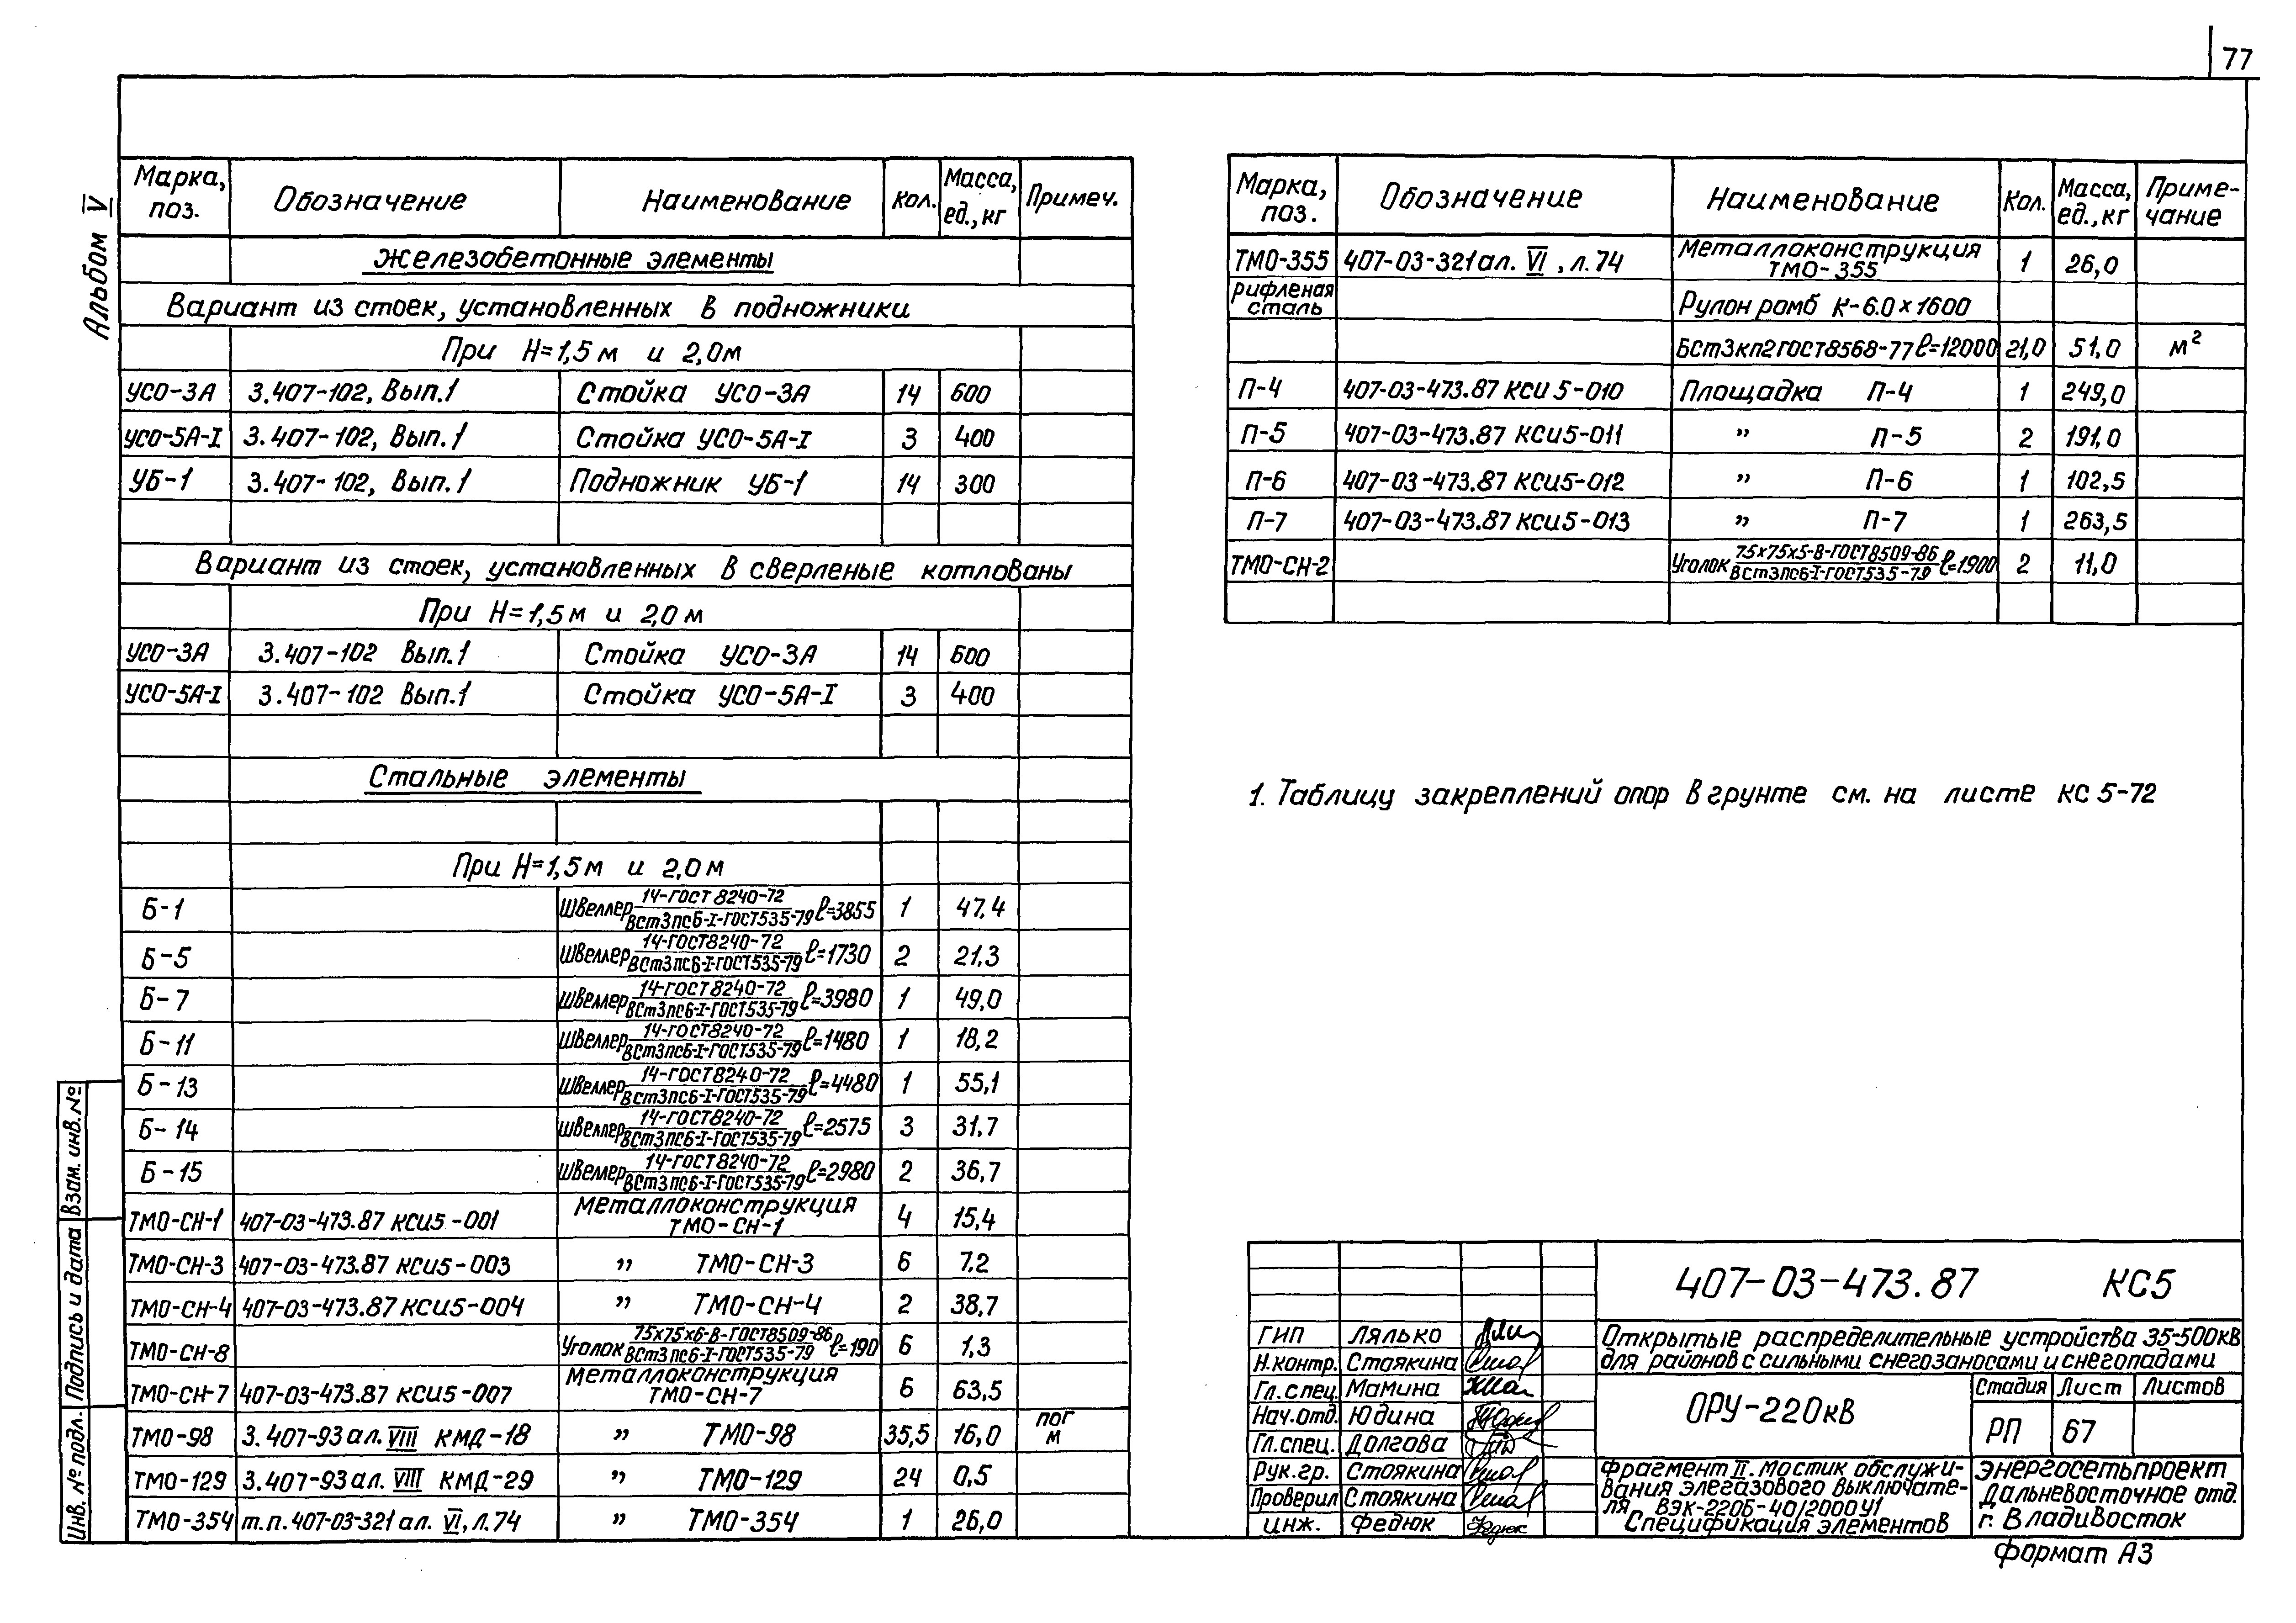 77
Альбом V
Марка, поз. Обозначение Наименование Кол. Масса, ед., кг Примеч.
Железобетонные элементы
Вариант из стоек, установленных в подножники
При Н=1,5м и 2,0м
УСО-3А 3.407-102, Вып.1 Стойка УСО-3А 14 600
УСО-5А-I 3.407-102, Вып.1 Стойка УСО-5А-I 3 400
УБ-1 3.407-102, Вып.1 Подножник УБ-1 14 300
Вариант из стоек, установленных в сверленые котлованы
При Н=1,5м и 2,0м
УСО-3А 3.407-102 Вып.1 Стойка УСО-3А 14 600
УСО-5А-I 3.407-102 Вып.1 Стойка УСО-5А-I 3 400
Стальные элементы
При Н=1,5м и 2,0м
Б-1 Швеллер 14-ГОСТ 8240-72 / ВСт3пс6-I-ГОСТ535-79 ℓ=3855 1 47,4
Б-5 Швеллер 14-ГОСТ8240-72 / ВСт3пс6-I-ГОСТ535-79 ℓ=1730 2 21,3
Б-7 Швеллер 14-ГОСТ8240-72 / ВСт3пс6-I-ГОСТ535-79 ℓ=3980 1 49,0
Б-11 Швеллер 14-ГОСТ8240-72 / ВСт3пс6-I-ГОСТ535-79 ℓ=1480 1 18,2
Б-13 Швеллер 14-ГОСТ8240-72 / ВСт3пс6-I-ГОСТ535-79 ℓ=4480 1 55,1
Б-14 Швеллер 14-ГОСТ8240-72 / ВСт3пс6-I-ГОСТ535-79 ℓ=2575 3 31,7
Б-15 Швеллер 14-ГОСТ8240-72 / ВСт3пс6-I-ГОСТ535-79 ℓ=2980 2 36,7
ТМО-СН-1 407-03-473.87 КСИ5-001 Металлоконструкция ТМО-СН-1 4 15,4
ТМО-СН-3 407-03-473.87 КСИ5-003 " ТМО-СН-3 6 7.2
ТМО-СН-4 407-03-473.87 КСИ5-004 " ТМО-СН-4 2 38,7
ТМО-СН-8 Уголок 75х75х6-В-ГОСТ8509-86 / ВСт3пс6-I-ГОСТ535-79 ℓ=190 6 1,3
ТМО-СН-7 407-03-473.87 КСИ5-007 Металлоконструкция ТМО-СН-7 6 63,5
ТМО-98 3.407-93 ал. VIII КМД-18 " ТМО-98 35,5 16,0 пог м
ТМО-129 3.407-93 ал. VIII КМД-29 " ТМО-129 24 0,5
ТМО-354 т.п. 407-03-321 ал. VI, л.74 " ТМО-354 1 26,0
Марка, поз. Обозначение Наименование Кол. Масса, ед., кг Примечание
ТМО-355 407-03-321 ал. VI, л.74 Металлоконструкция ТМО-355 1 26,0
Рифленая сталь Рулон ромб К-6.0×1600
БСт3кп2ГОСТ8568-77 ℓ=12000 21,0 51,0 м²
П-4 407-03-473.87 КСИ 5-010 Площадка П-4 1 249,0
П-5 407-03-473.87 КСИ5-011 " П-5 2 191,0
П-6 407-03-473.87 КСИ5-012 " П-6 1 102,5
П-7 407-03-473.87 КСИ5-013 " П-7 1 263,5
ТМО-СН-2 Уголок 75х75х5-В-ГОСТ8509-86 / ВСт3пс6-I-ГОСТ535-79 ℓ=1900 2 11,0
1. Таблицу закреплений опор в грунте см. на листе КС 5-72
Инв. № подл. Подпись и дата Взам. инв. №
407-03-473.87 КС5
ГИП Лялько
Н.контр. Стоякина
Гл.спец. Мамина
Нач.отд. Юдина
Гл.спец. Долгова
Рук.гр. Стоякина
Проверил Стоякина
Инж. Федюк
Открытые распределительные устройства 35-500кВ
для районов с сильными снегозаносами и снегопадами
ОРУ-220кВ
Стадия Лист Листов
РП 67
Фрагмент II. Мостик обслужи-
вания элегазового выключате-
ля ВЭК-220Б-40/2000У1
Спецификация элементов
Энергосетьпроект
Дальневосточное отд.
г. Владивосток
Формат А3